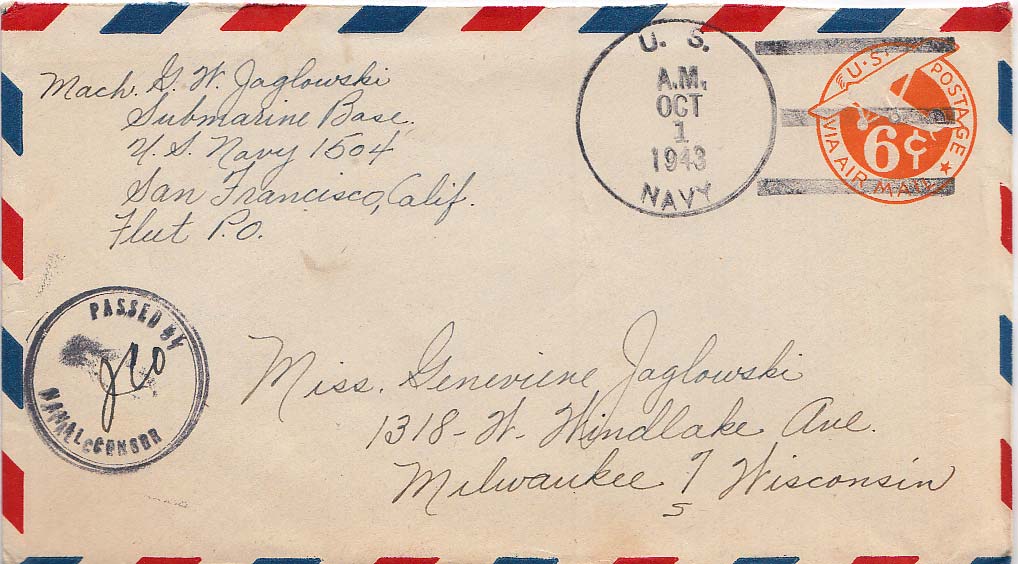 Mach. G. W. Jaglowski
Submarine Base.
U. S. Navy 1504
San Francisco, Calif.
Fleet P.O.
U. S.
A.M.
OCT
1
1943
NAVY
U.S. POSTAGE
6¢
VIA AIR MAIL
PASSED BY
NAVAL CENSOR
Miss. Genevieve Jaglowski
1318-W. Windlake Ave.
Milwaukee 7 Wisconsin
5